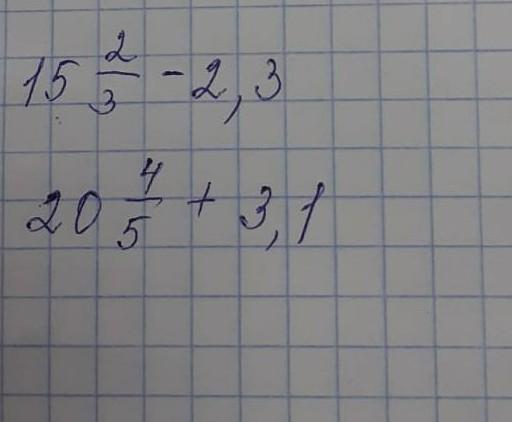 15 2/3 - 2,3
20 4/5 + 3,1